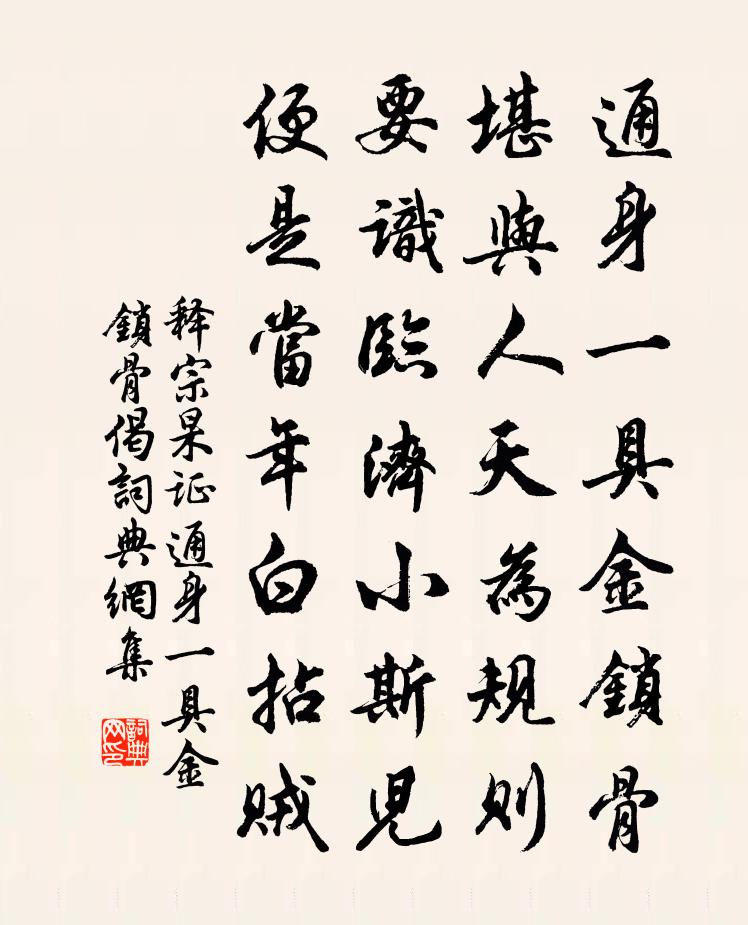 通身一具金鎖骨
堪與人天為規則
要識臨濟小斯兒
便是當年白拈賊
释宗杲证通身一具金
鎖骨偈詞典網集
詞典网印